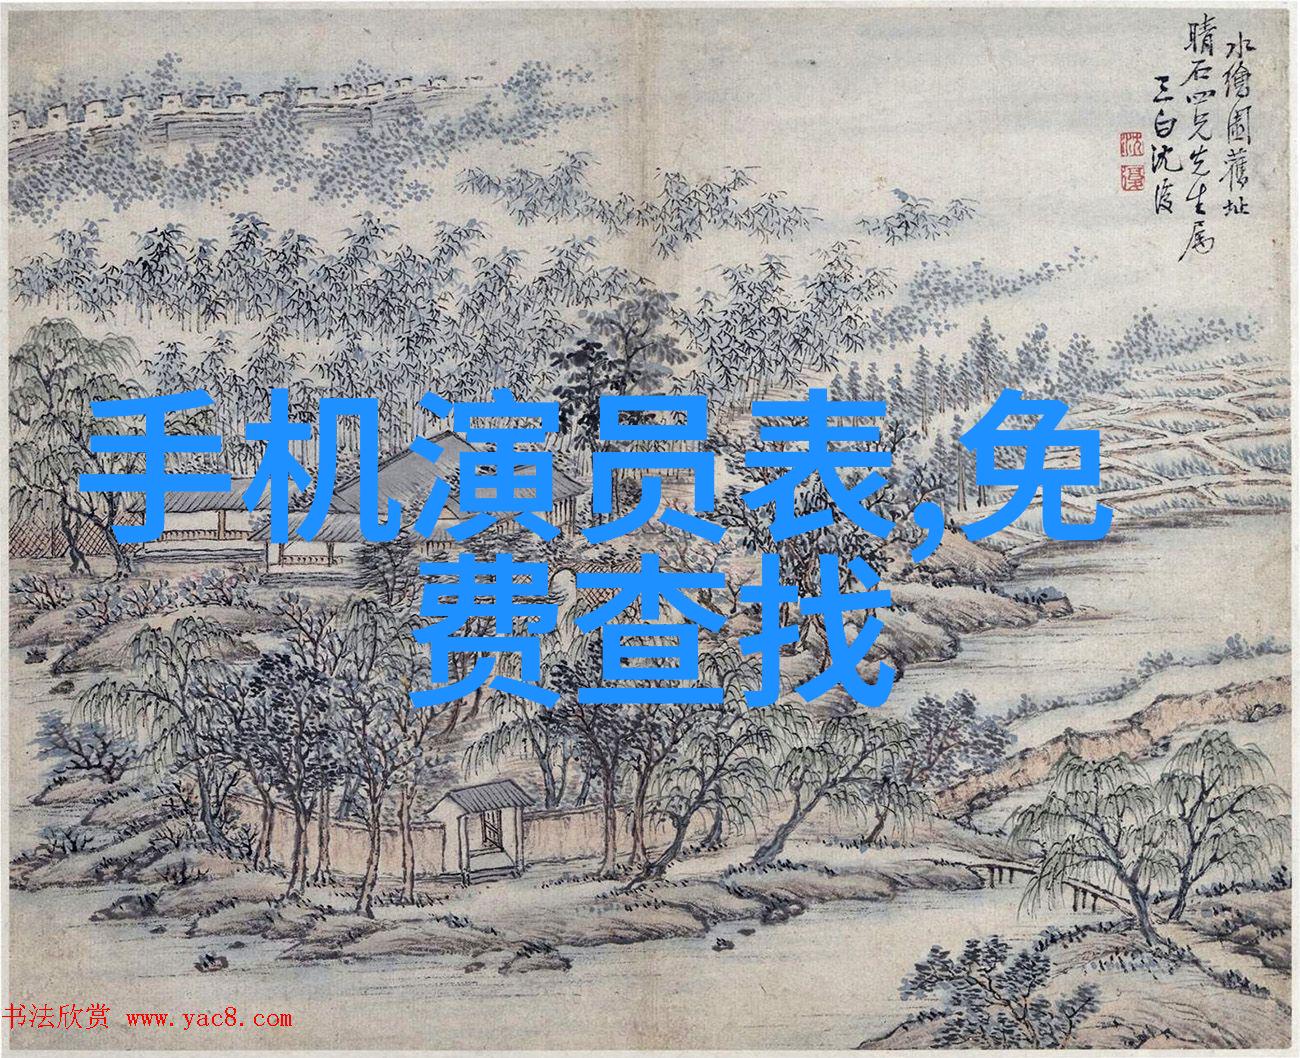 水繪園舊址
晴石四兄先生属
三白沈復
沈
復
手机演员表,免
费查找
书法欣赏 www.yac8.com